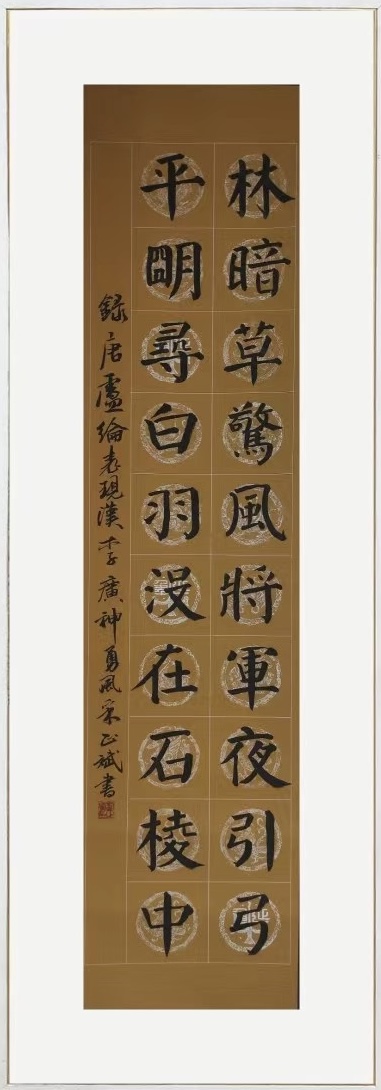 林暗草驚風將軍夜引弓
平明尋白羽没在石棱中
録唐盧綸表現漢李廣神勇風采正斌書